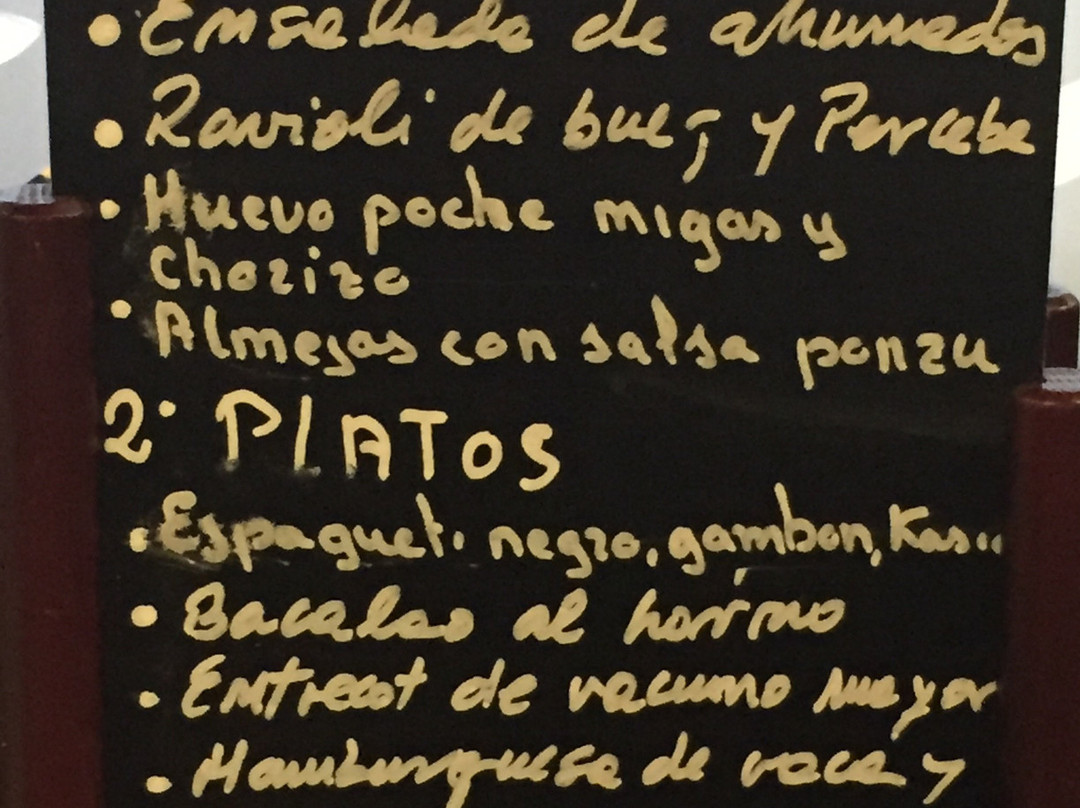 • Ensalada de ahumados
• Ravioli de buey y Percebe
• Huevo poche migas y
Chorizo
• Almejas con salsa ponzu
2º PlATOS
• Espagueti negro, gambon,
• Bacalao al horno
• Entrecot de vacuno mayor
• Hamburguesa de vaca y